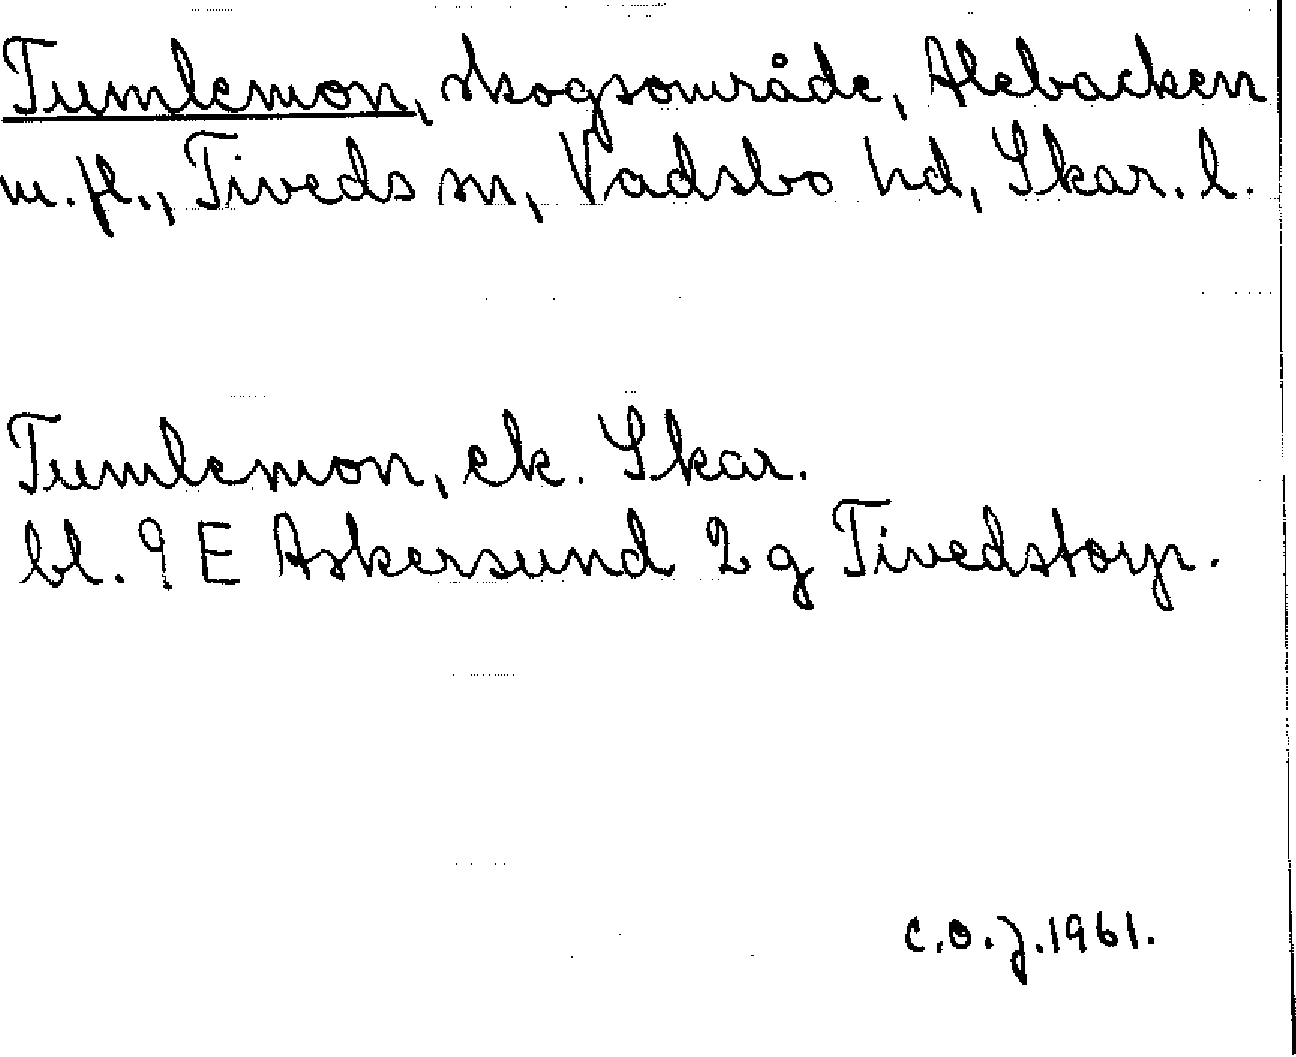 Tumlemon, skogsområde, Alebacken
m.fl., Tiveds sn, Vadsbo hd, Skar. l.
Tumlemon, ek. Skar.
bl. 9 E Askersund 2 g Tivedstorp.
C.O.J. 1961.